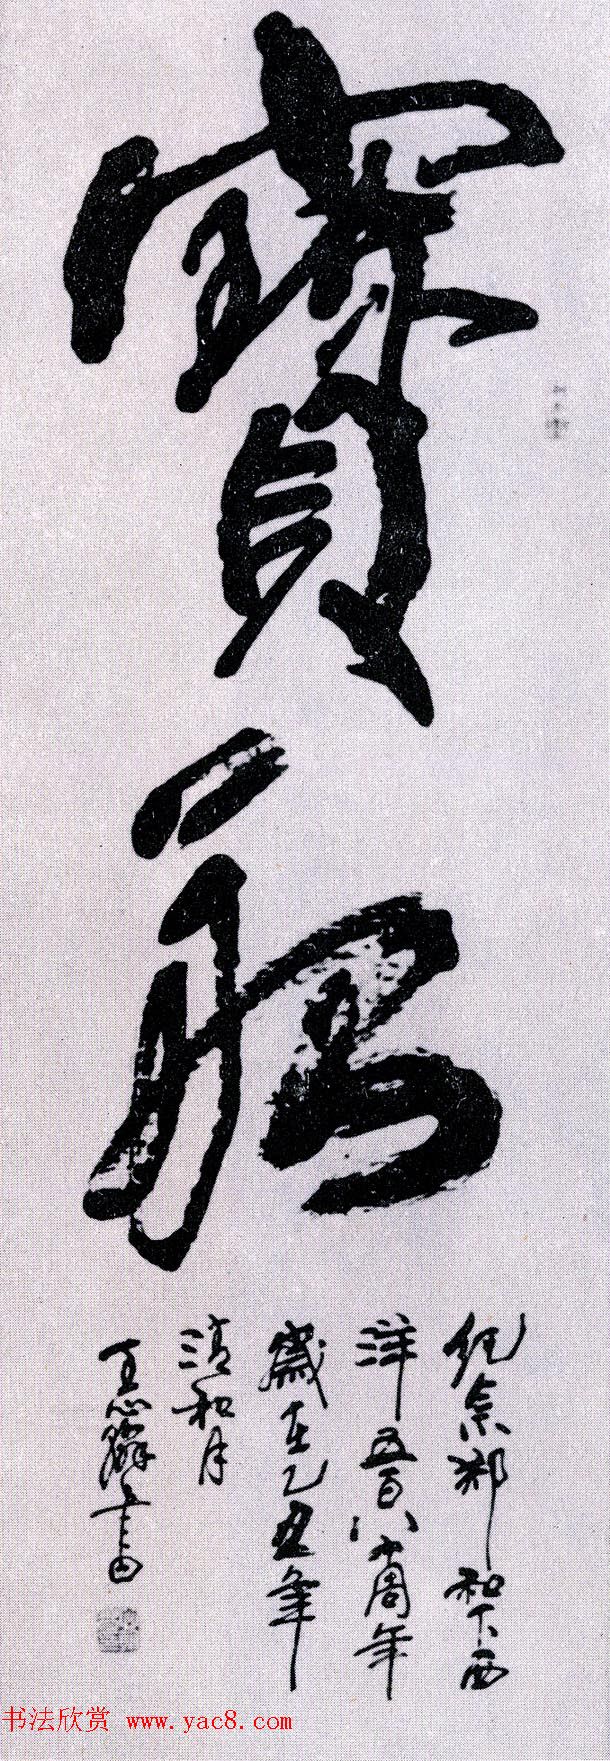 寶船
纪念郑和下西
洋五百八十周年
歲在乙丑年
清和月
王書
书法欣赏 www.yac8.com